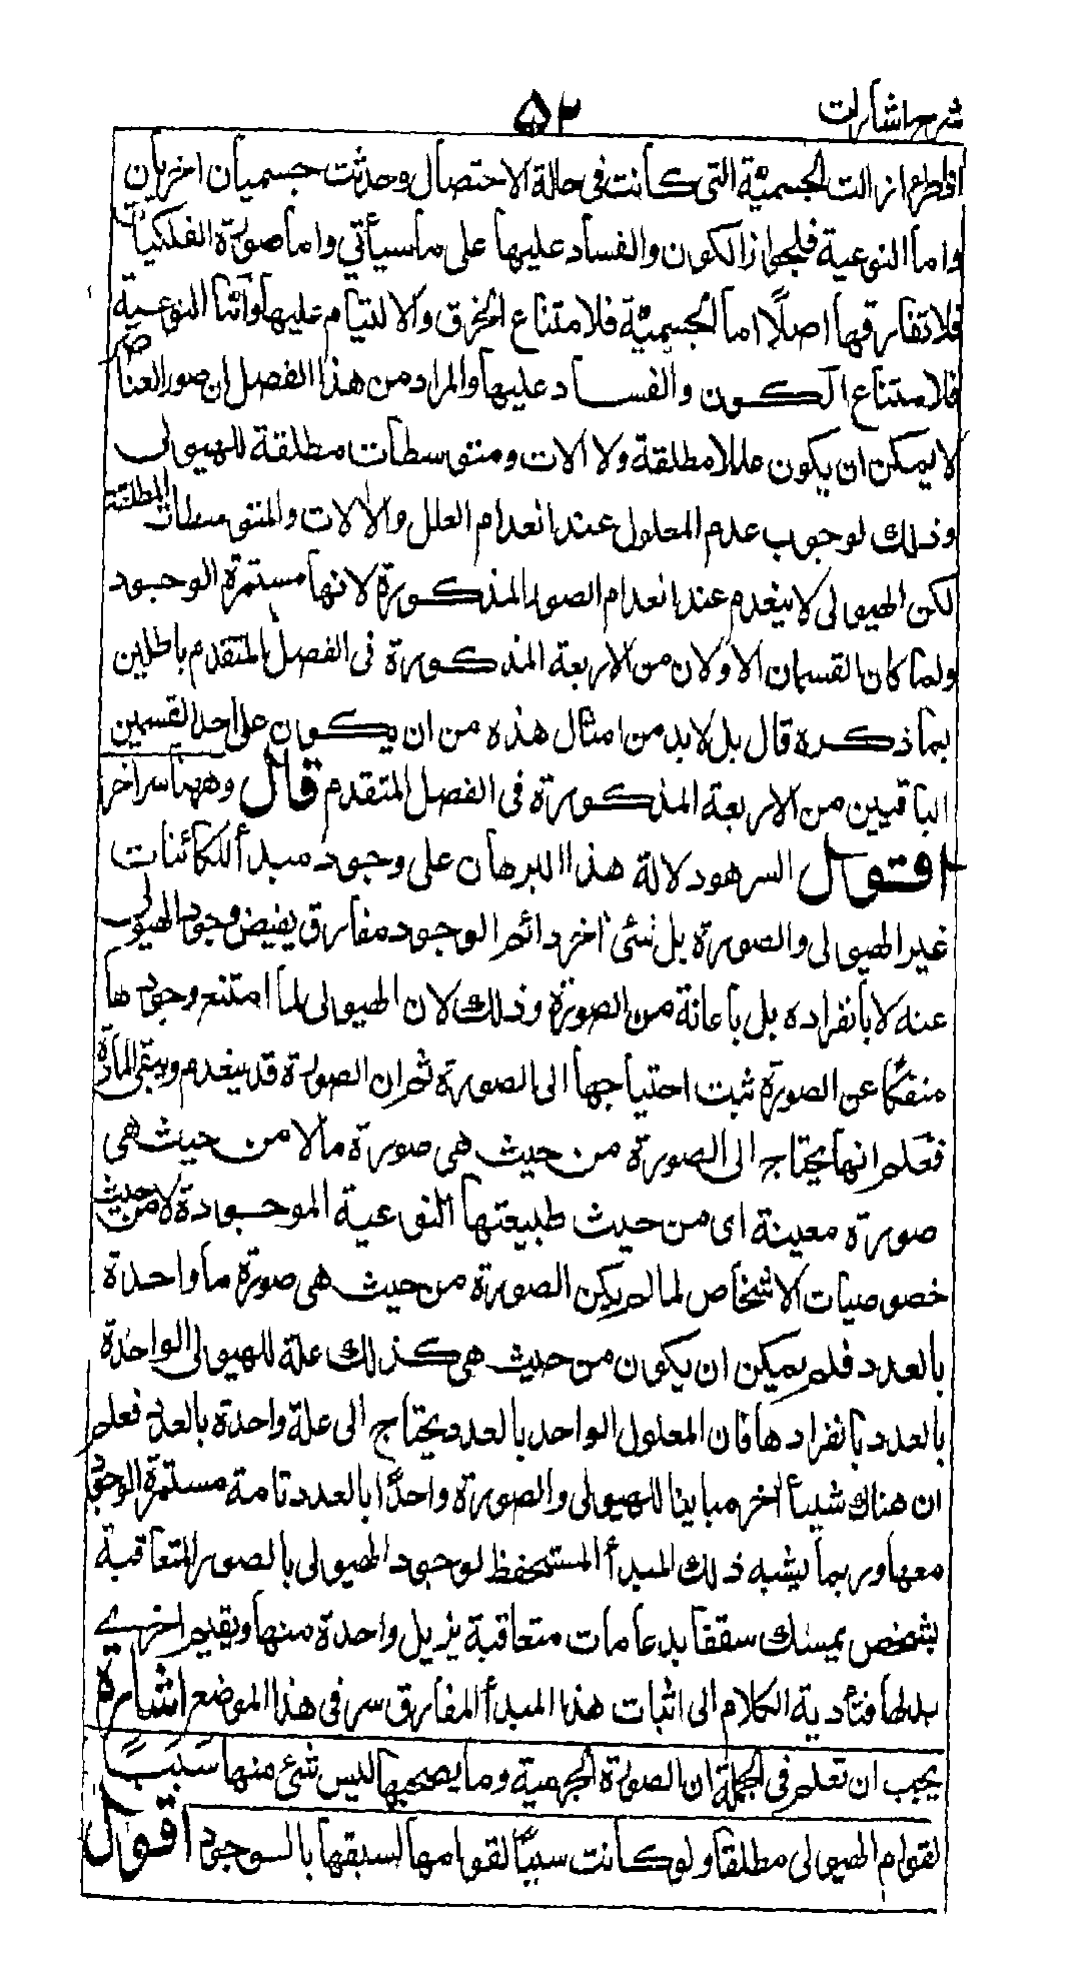 شرح اشارات
۵۲
اذ طرءا زالت الجسمية التى كانت فى حالة الاتصال وحدثت جسميتان اخريان
واما النوعية فلجواز الكون والفساد عليها على ما سيأتي واما صورة الفلكيات
فلا تفارقها اصلًا اما الجسمية فلامتناع الخرق والالتيام عليها وأما النوعية
فلامتناع الكون والفساد عليها والمراد من هذا الفصل ان صور العناصر
لا يمكن ان يكون عللا مطلقة ولا آلات ومتوسطات مطلقة للهيولى
وذلك لوجوب عدم المعلول عند انعدام العلل والآلات والمتوسطات المطلقة
لكن الهيولى لا ينعدم عند انعدام الصور المذكورة لانها مستمرة الوجود
ولما كان القسمان الاولان من الاربعة المذكورة فى الفصل المتقدم باطلين
بما ذكره قال بل لابد من امثال هذه من ان يكون على احد القسمين
الباقيين من الاربعة المذكورة فى الفصل المتقدم قال وههنا سر اخر
اقول السر هو دلالة هذا البرهان على وجود مبدأ للكائنات
غير الهيولى والصورة بل شئ اخر دائم الوجود مفارق يفيض وجود الهيولى
عنه لا بانفراده بل باعانة من الصورة وذلك لان الهيولى لما امتنع وجودها
منفكا عن الصورة ثبت احتياجها الى الصورة ثم ان الصورة قد ينعدم ويبقى المادة
فعلم انها يحتاج الى الصورة من حيث هى صورة ما لا من حيث هى
صورة معينة اى من حيث طبيعتها النوعية الموجودة لا من حيث
خصوصيات الاشخاص لما لم يكن الصورة من حيث هى صورة ما واحدة
بالعدد فلم يمكن ان يكون من حيث هى كذلك علة للهيولى الواحدة
بالعدد بانفرادها فان المعلول الواحد بالعدد يحتاج الى علة واحدة بالعدد فعلم
ان هناك شيئا آخر مباينا للهيولى والصورة واحدًا بالعدد تامة مستمرة الوجود
معها وربما يشبه ذلك المبدأ المستحفظ لوجود الهيولى بالصور المتعاقبة
بشخص يمسك سقفا بدعامات متعاقبة يزيل واحدة منها ويقيم اخرى
بدلها فتأدية الكلام الى اثبات هذا المبدأ المفارق سر فى هذا الموضع اشارة
يجب ان تعلم فى الجملة ان الصورة الجرمية وما يصحبها ليس شئ منها سببًا
لقوام الهيولى مطلقا ولو كانت سببًا لقوامها لسبقها بالوجود اقول